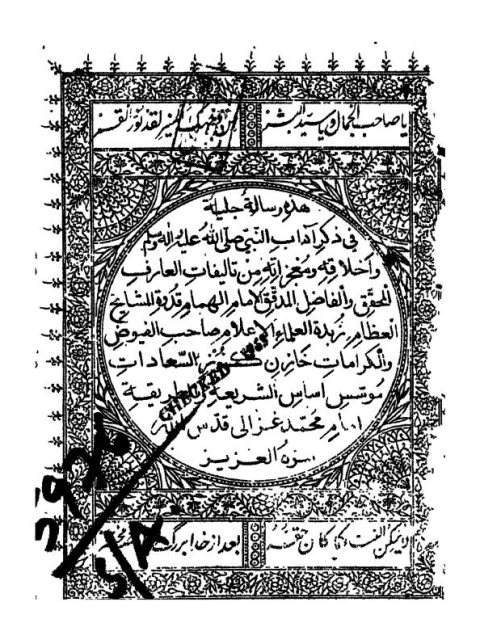 یا صاحب الجمال و یا سید البشر من وجهک المنیر لقد نور القمر
هذه رسالة جليلة
في ذكر اداب النبي صلى الله عليه واله وسلم
واخلاقه ومعجزاته من تاليفات العارف
المحقق والفاضل المدقق الامام الهمام قدوة المشائخ
العظام زبدة العلماء الاعلام صاحب الفيوض
والكرامات خازن كنوز السعادات
موسس اساس الشريعة والطريقة
امام محمد غزالى قدس الله
سره العزيز
CHECKED
لا یمکن الثناء کما کان حقه بعد از خدا بزرگ